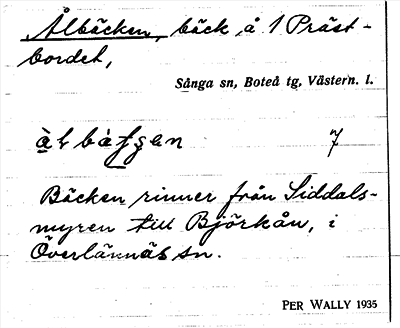 Ålbäcken, bäck å 1 Präst-
bordet,
Sånga sn, Boteå tg, Västern. l.
7
Bäcken rinner från Siddals-
myren till Björkån, i
Överlännäs sn.
PER WALLY 1935